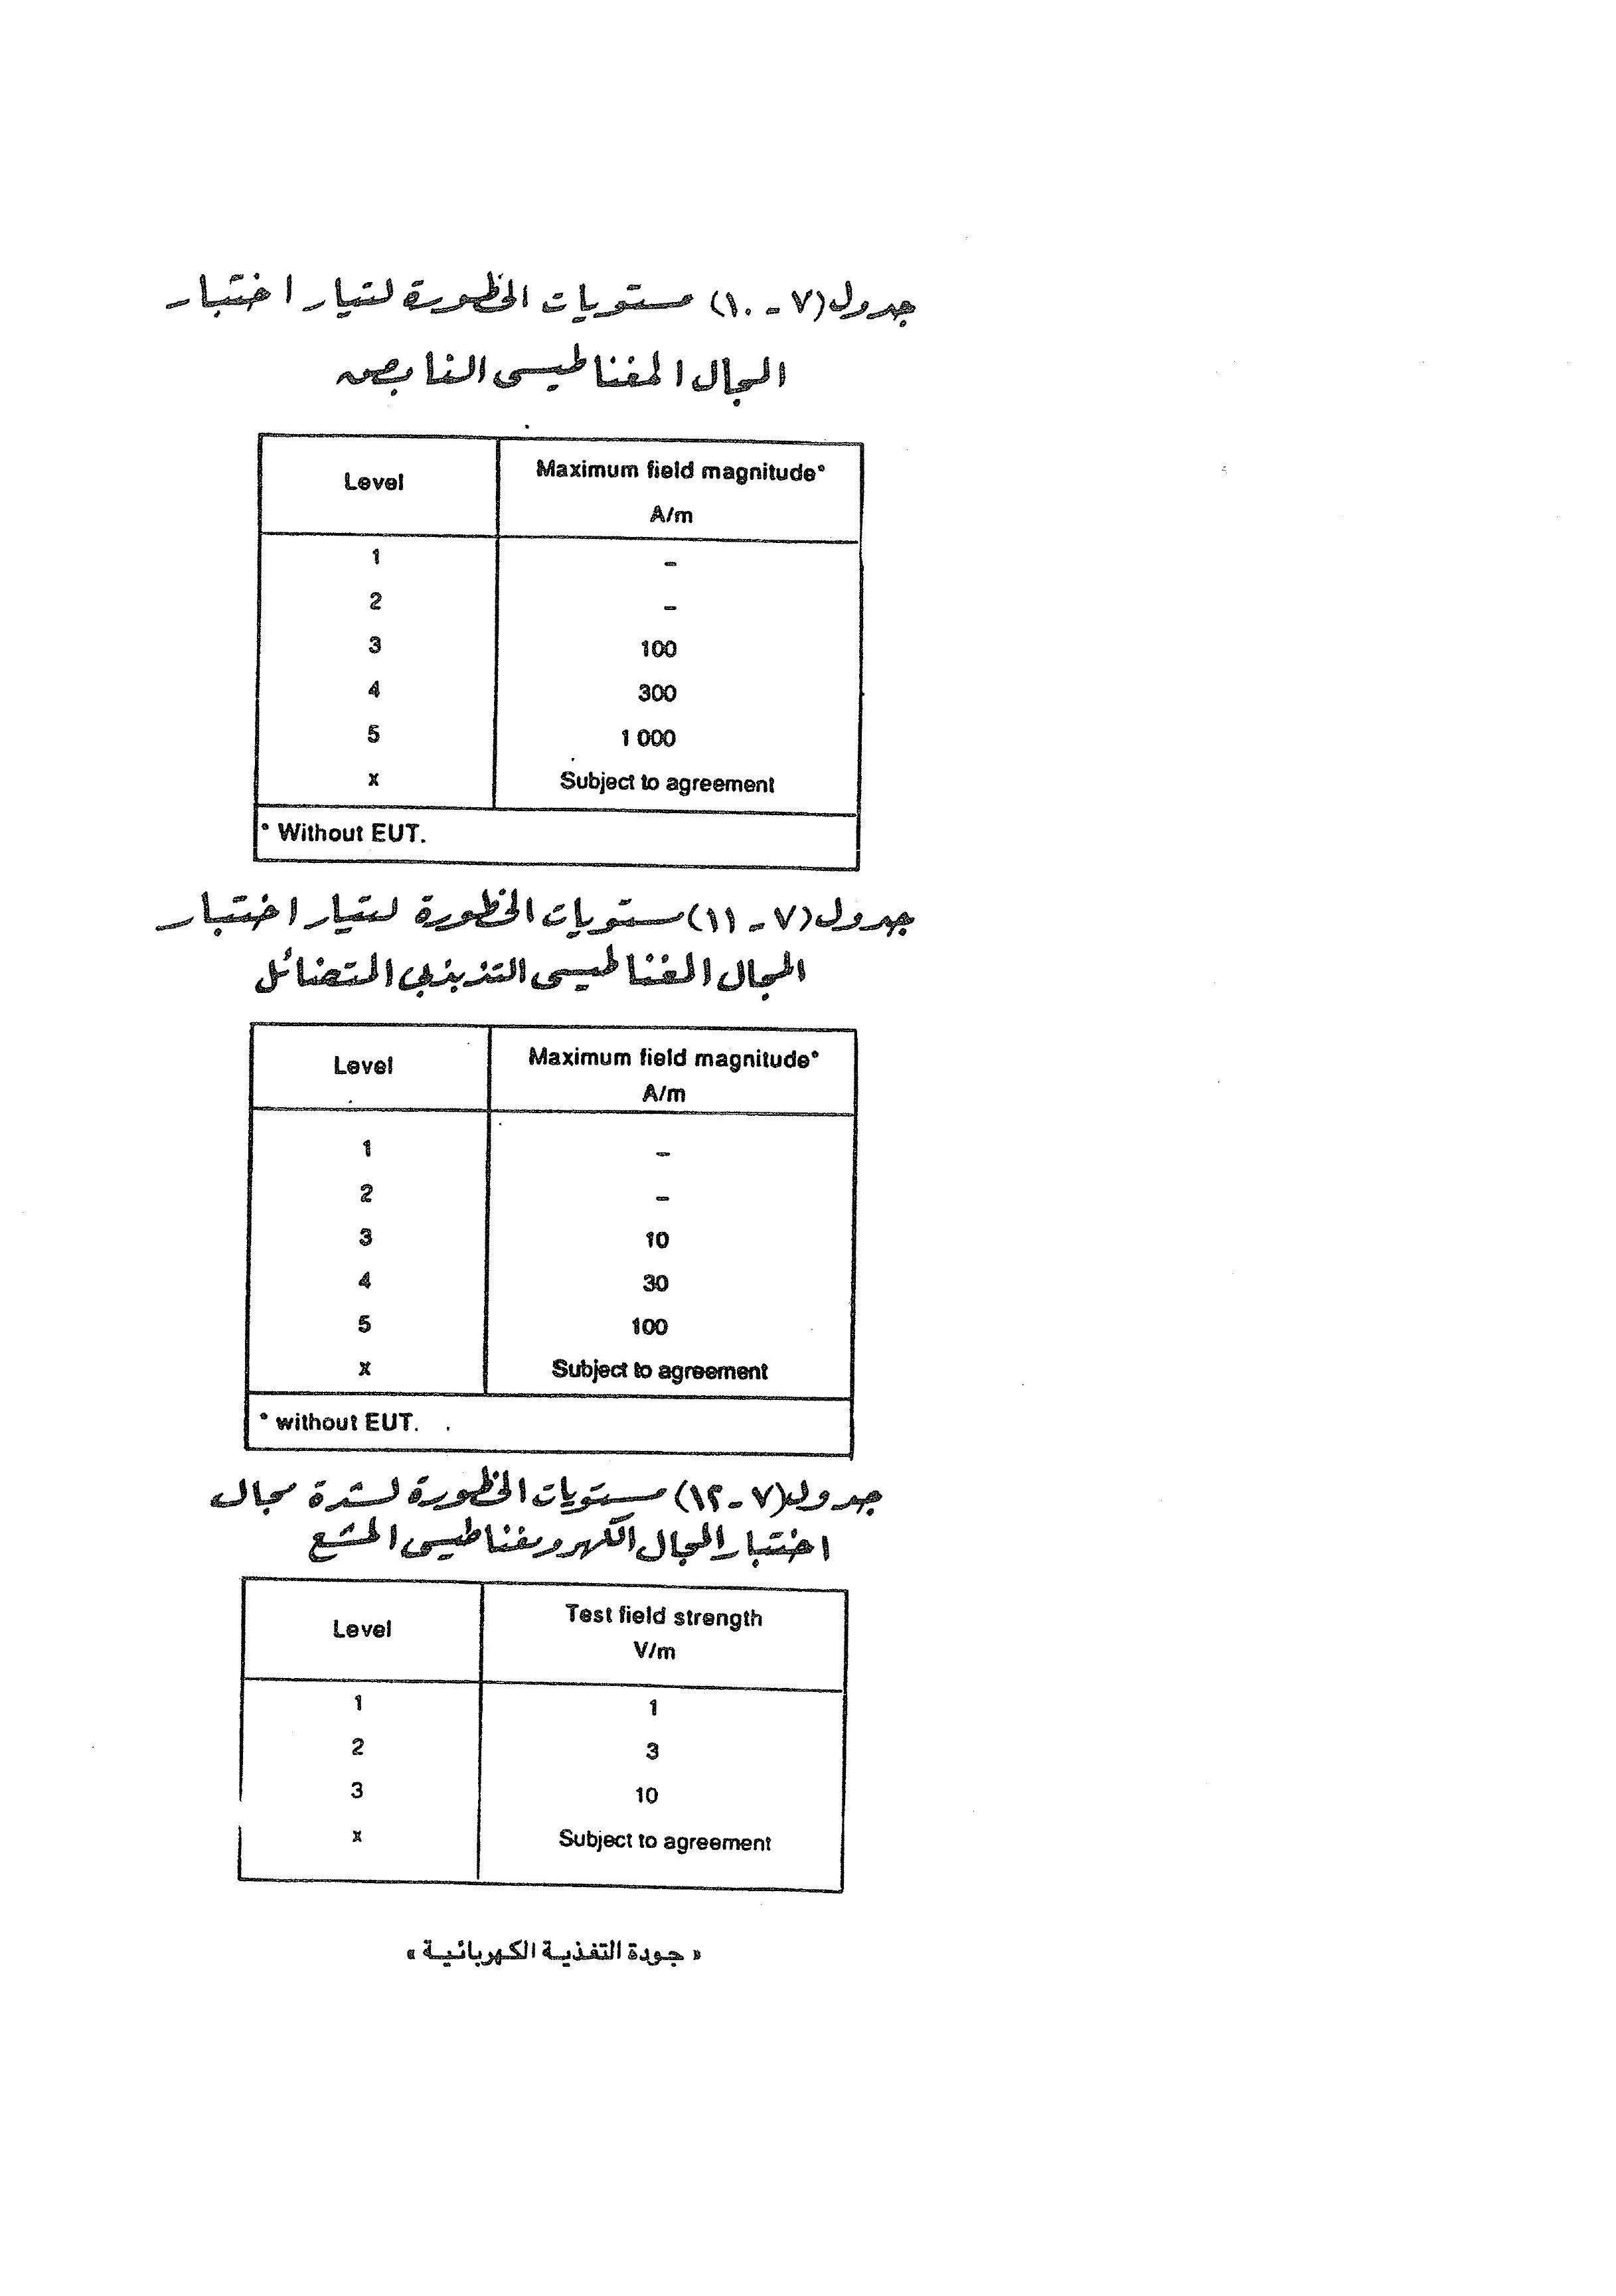 جدول (٧ - ١٠) مستويات الخطورة لتيار اختبار
المجال المغناطيسى النابض
Level
Maximum field magnitude*
A/m
1 –
2 –
3 100
4 300
5 1 000
x Subject to agreement
* Without EUT.
جدول (٧ - ١١) مستويات الخطورة لتيار اختبار
المجال المغناطيسى التذبذبى المتضائل
Level
Maximum field magnitude*
A/m
1 –
2 –
3 10
4 30
5 100
x Subject to agreement
* without EUT.
جدول (٧ - ١٢) مستويات الخطورة لشدة مجال
اختبار المجال الكهرومغناطيسى المشع
Level
Test field strength
V/m
1 1
2 3
3 10
x Subject to agreement
« جودة التغذية الكهربائية »